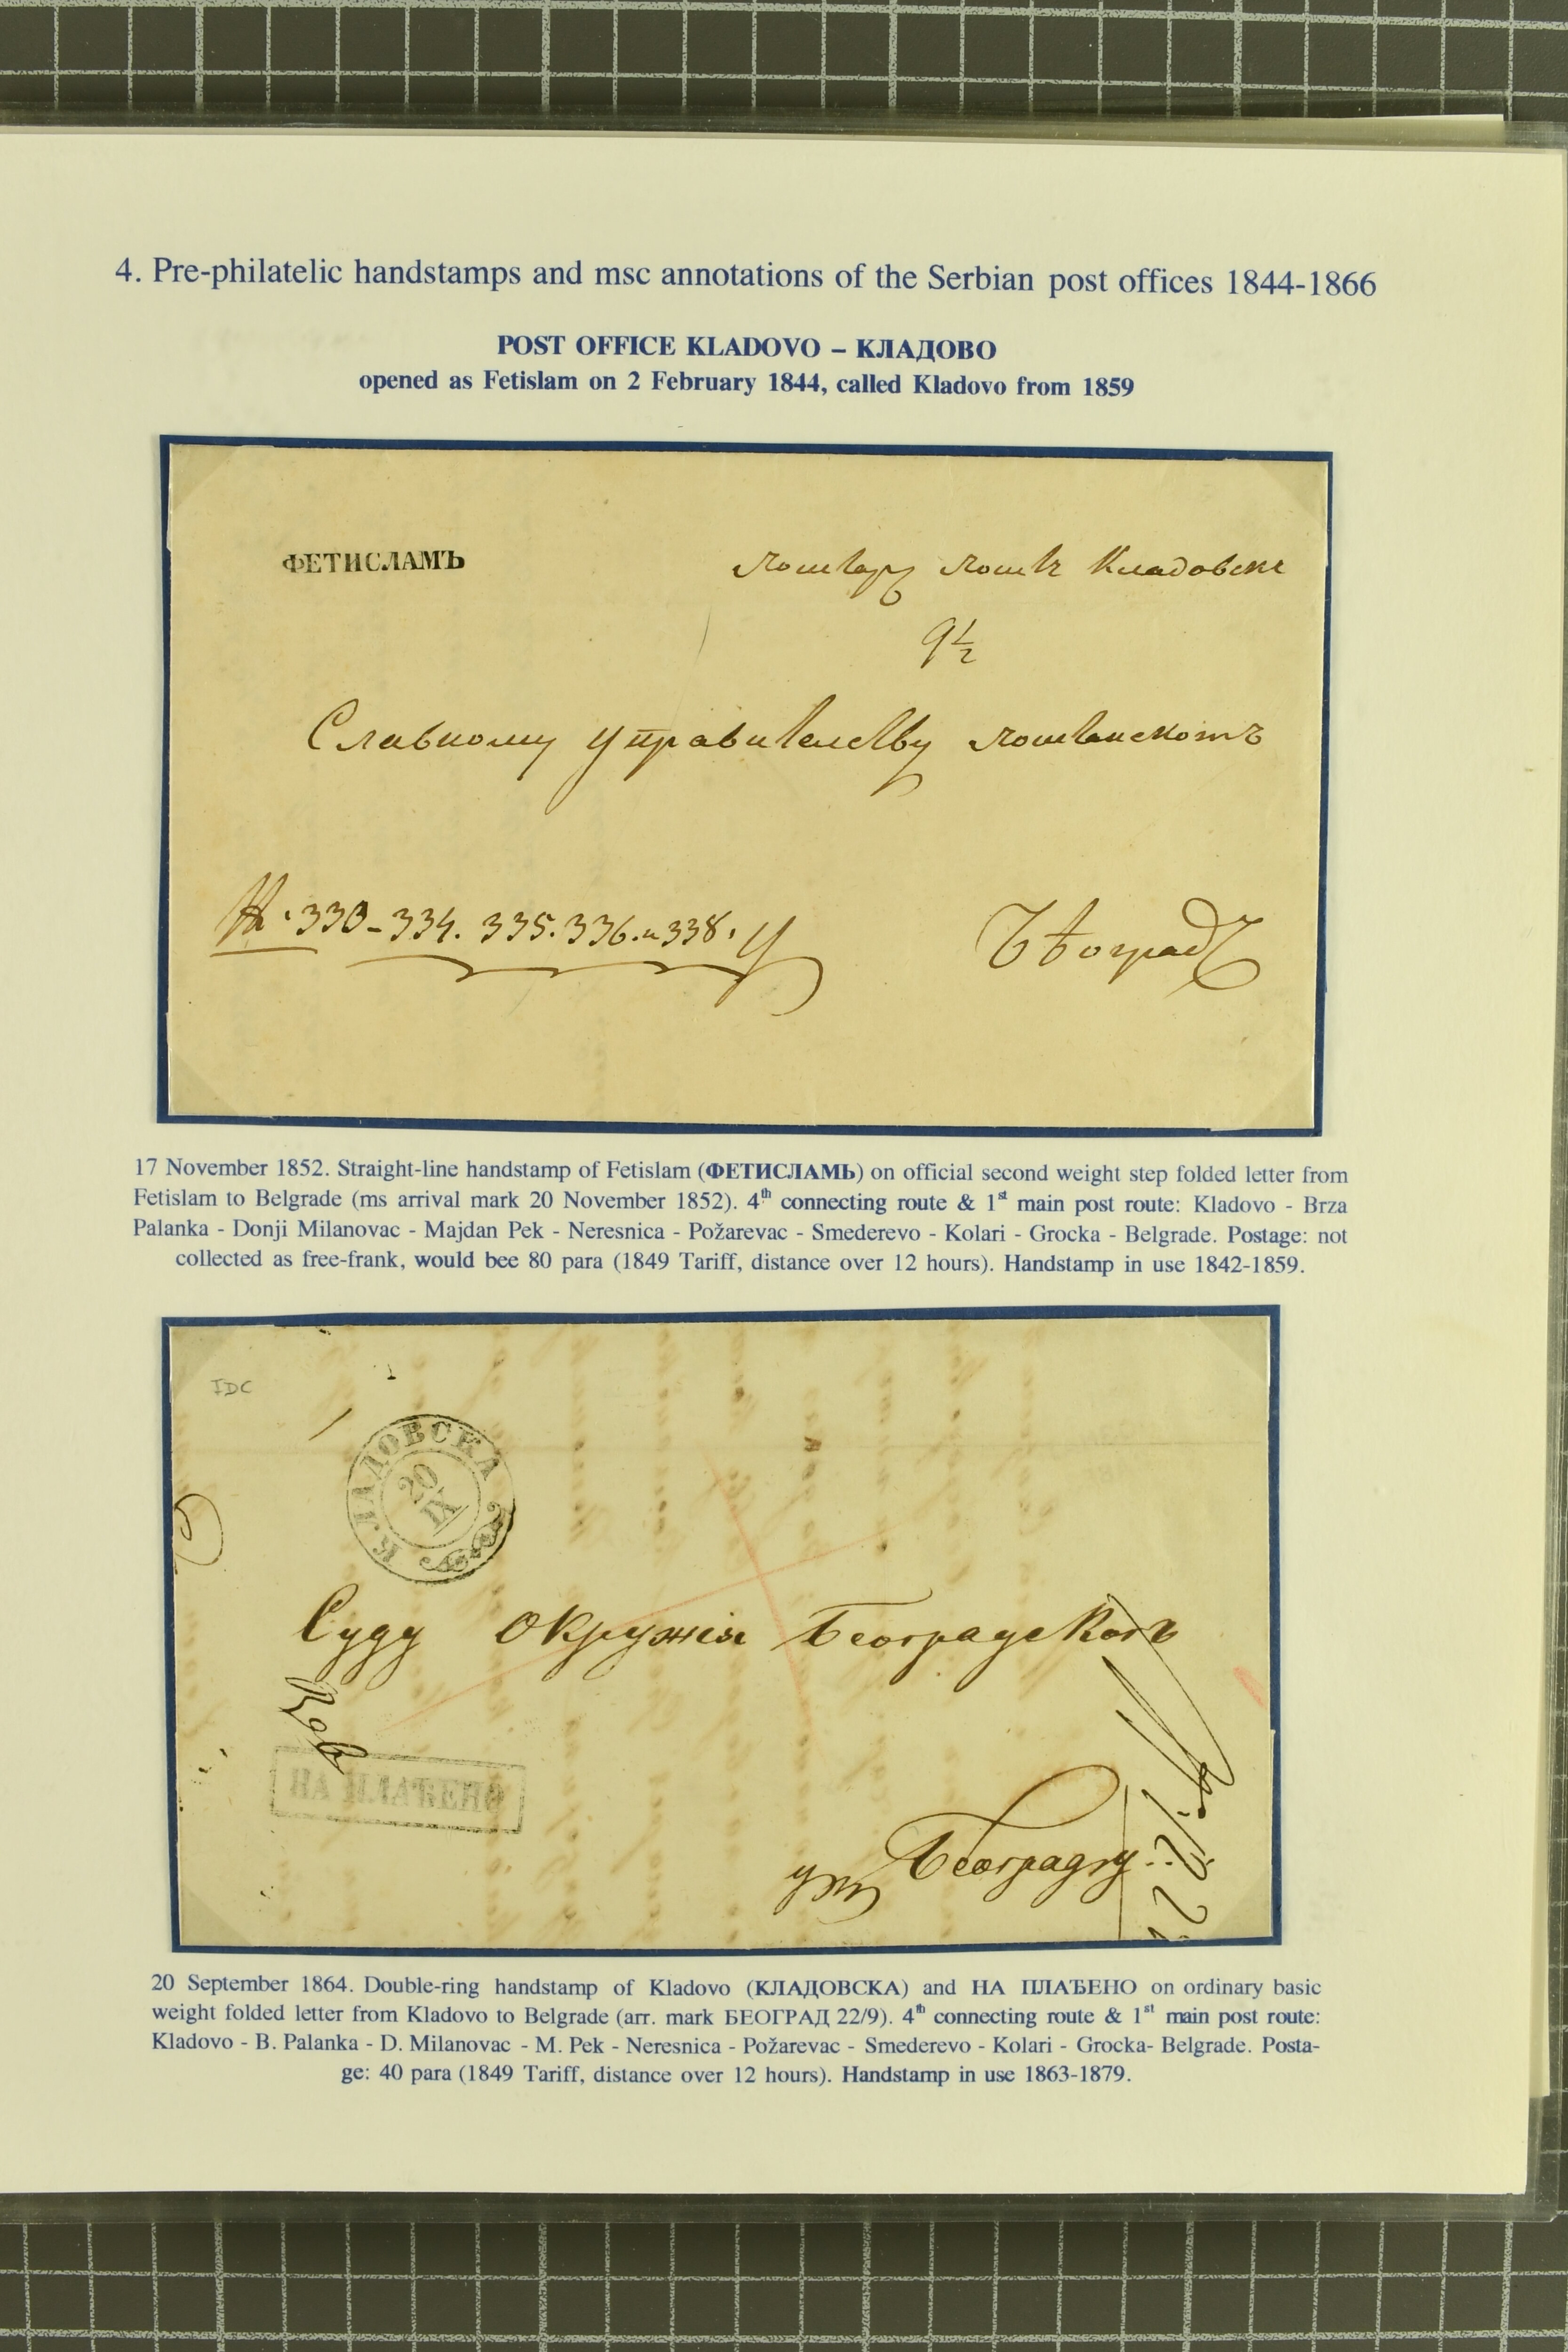 4. Pre-philatelic handstamps and msc annotations of the Serbian post offices 1844-1866
POST OFFICE KLADOVO – КЛАДОВО
opened as Fetislam on 2 February 1844, called Kladovo from 1859
ФЕТИСЛАМЪ
9½
Славному Управителству
330-334. 335. 336. и 338.
Бѣоградъ
17 November 1852. Straight-line handstamp of Fetislam (ФЕТИСЛАМЬ) on official second weight step folded letter from
Fetislam to Belgrade (ms arrival mark 20 November 1852). 4th connecting route & 1st main post route: Kladovo - Brza
Palanka - Donji Milanovac - Majdan Pek - Neresnica - Požarevac - Smederevo - Kolari - Grocka - Belgrade. Postage: not
collected as free-frank, would bee 80 para (1849 Tariff, distance over 12 hours). Handstamp in use 1842-1859.
IDC
КЛАДОВСКА
20
IX
Суду Окружія Београдскогъ
НА ПЛАЋЕНО
у Београду
20 September 1864. Double-ring handstamp of Kladovo (КЛАДОВСКА) and НА ПЛАЂЕНО on ordinary basic
weight folded letter from Kladovo to Belgrade (arr. mark БЕОГРАД 22/9). 4th connecting route & 1st main post route:
Kladovo - B. Palanka - D. Milanovac - M. Pek - Neresnica - Požarevac - Smederevo - Kolari - Grocka- Belgrade. Posta-
ge: 40 para (1849 Tariff, distance over 12 hours). Handstamp in use 1863-1879.